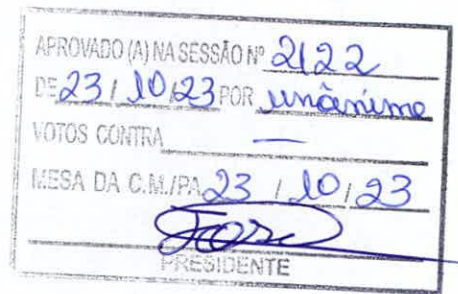 APROVADO (A) NA SESSÃO Nº 2122
DE 23 / 10 / 23 POR unânime
VOTOS CONTRA —
MESA DA C.M./PA 23 / 10 / 23
PRESIDENTE